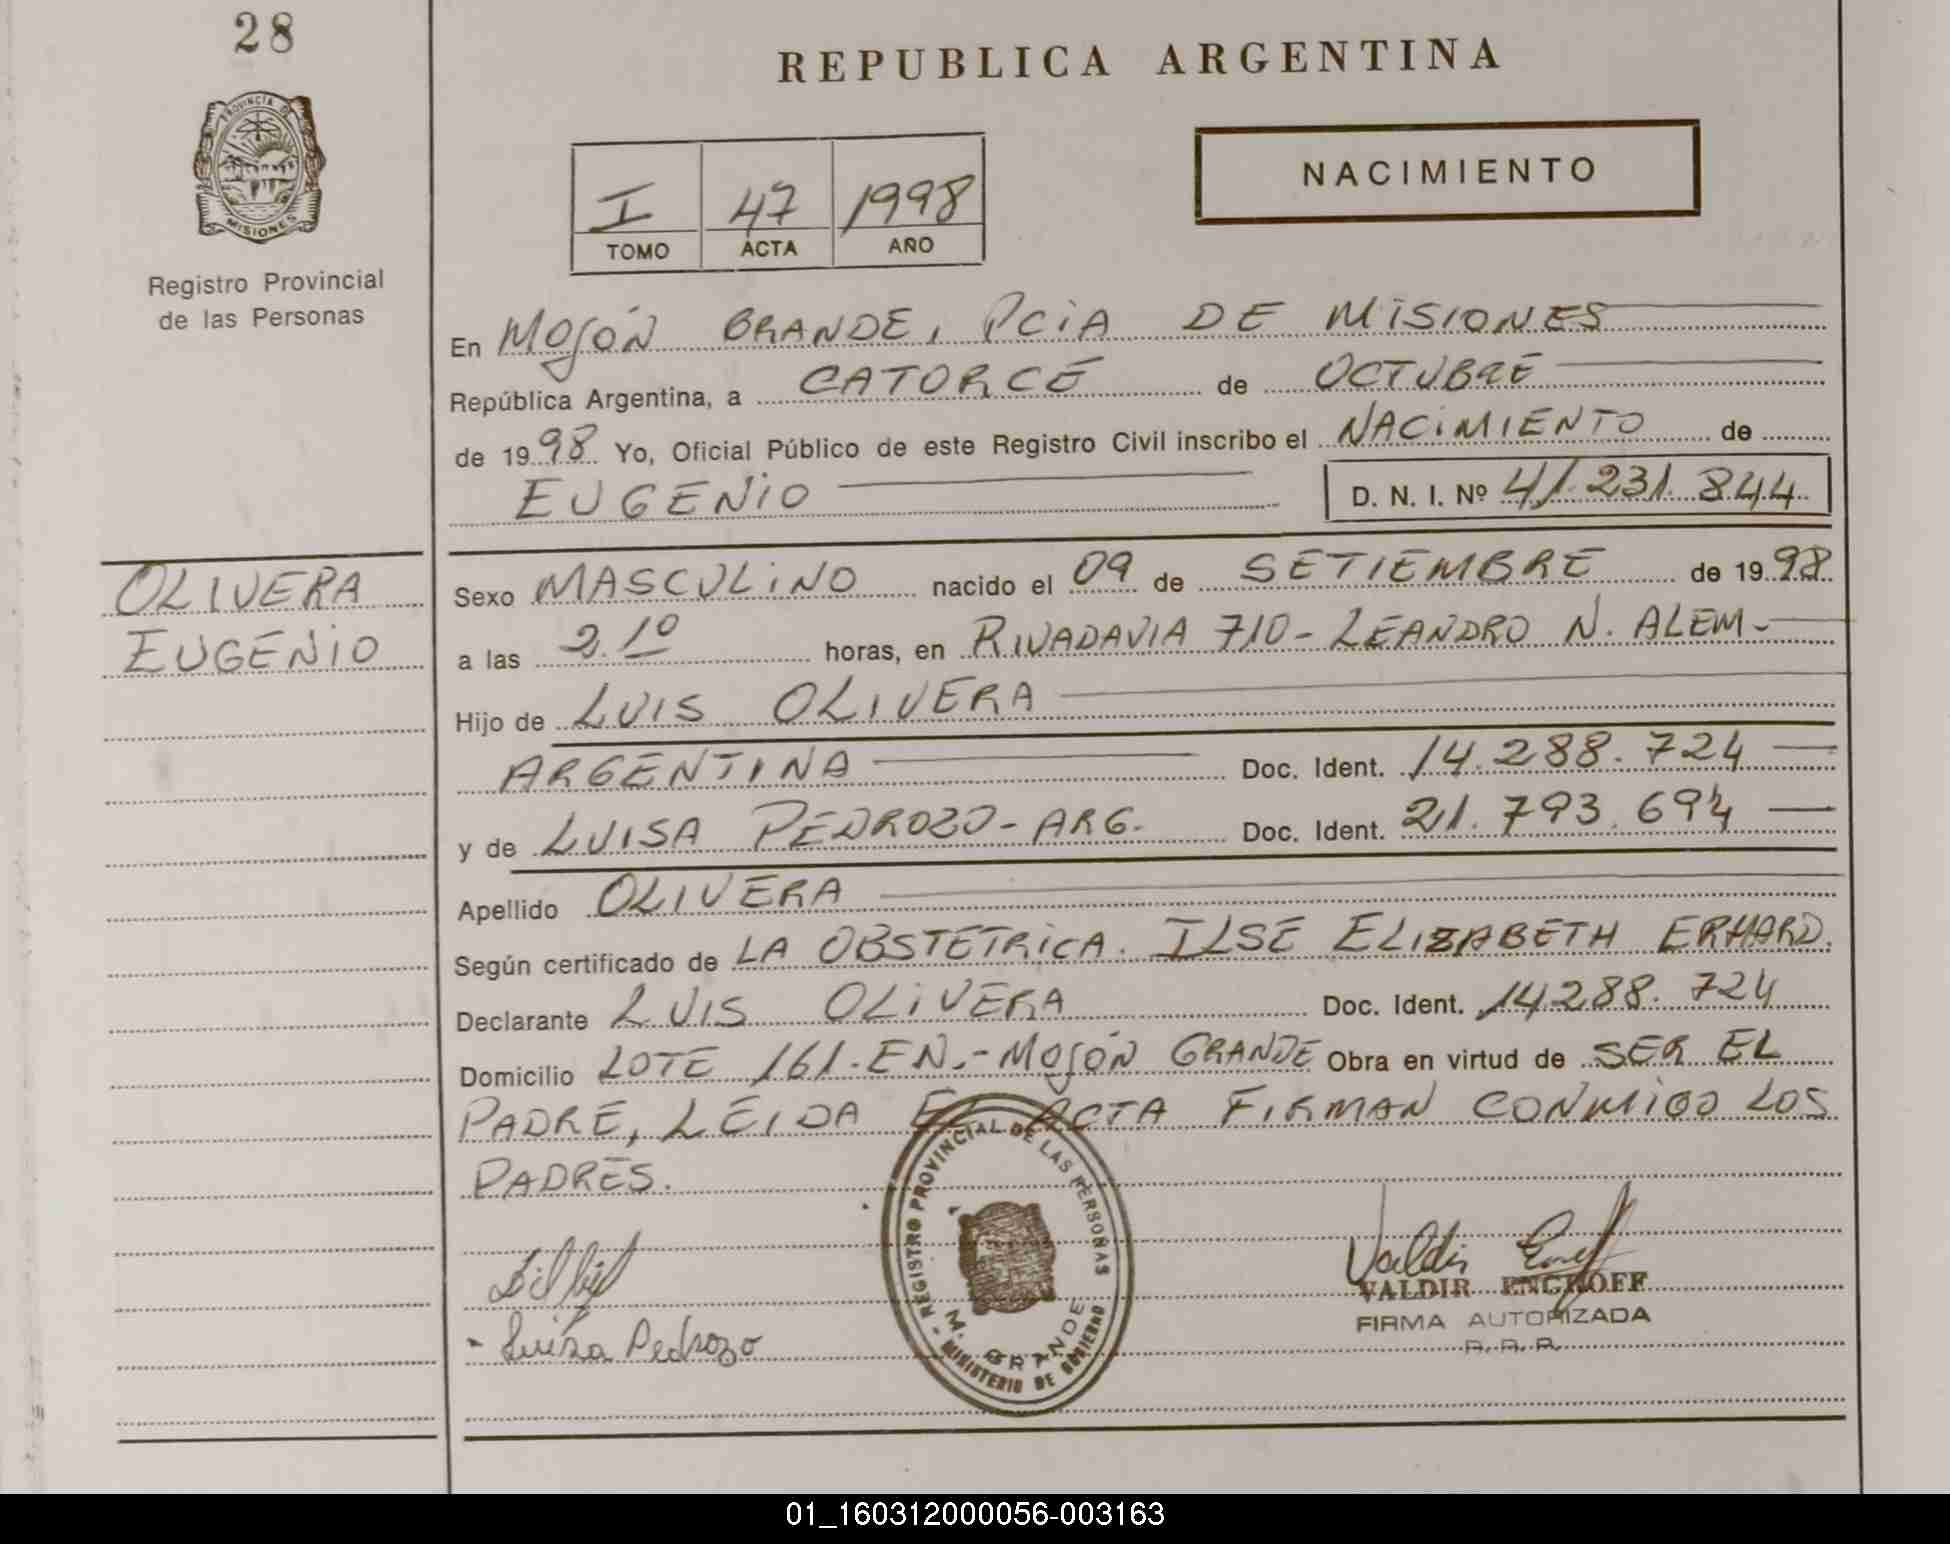 28
REPUBLICA ARGENTINA
PROVINCIA DE
MISIONES
Registro Provincial
de las Personas
I 47 1998
TOMO ACTA AÑO
NACIMIENTO
En MOJÓN GRANDE, PCIA DE MISIONES
República Argentina, a CATORCE de OCTUBRE
de 1998 Yo, Oficial Público de este Registro Civil inscribo el NACIMIENTO de
EUGENIO D. N. I. Nº 41.231.844
OLIVERA
EUGENIO
Sexo MASCULINO nacido el 09 de SETIEMBRE de 1998
a las 2.10 horas, en RIVADAVIA 710 - LEANDRO N. ALEM -
Hijo de LUIS OLIVERA
ARGENTINA Doc. Ident. 14.288.724
y de LUISA PEDROZO - ARG. Doc. Ident. 21.793.694
Apellido OLIVERA
Según certificado de LA OBSTETRICA. ILSE ELIZABETH ERHARD.
Declarante LUIS OLIVERA Doc. Ident. 14.288.724
Domicilio LOTE 161. EN.- MOJÓN GRANDE Obra en virtud de SER EL
PADRE, LEIDA EL ACTA FIRMAN CONMIGO LOS
PADRES.
REGISTRO PROVINCIAL DE LAS PERSONAS
M. GRANDE
MINISTERIO DE GOBIERNO
Luisa Pedrozo
Valdir
VALDIR ENGHOFF
FIRMA AUTORIZADA
01_160312000056-003163